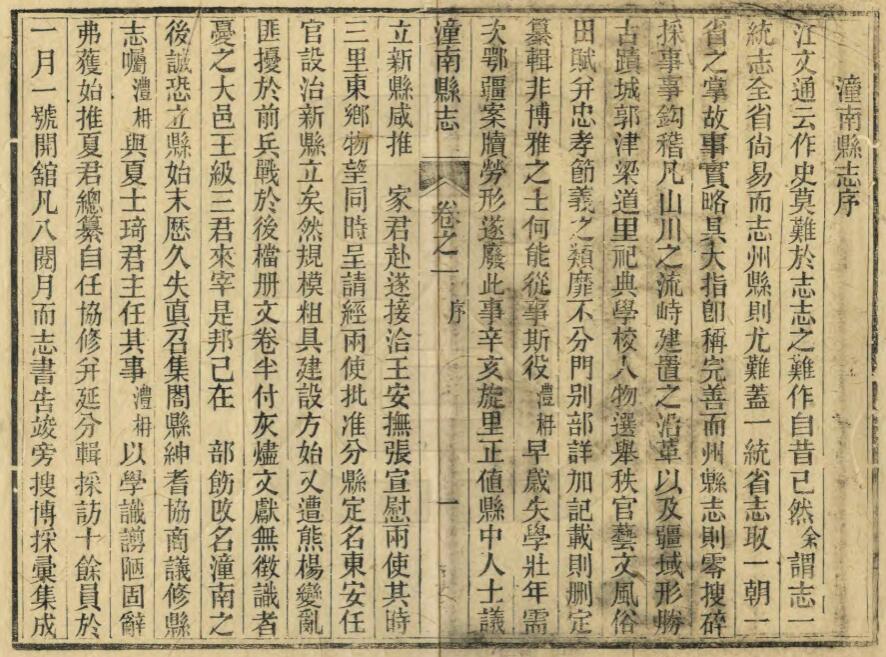 潼南縣志序
江文通云作史莫難於志志之難作自昔已然余謂志一
統志全省尙易而志州縣則尤難蓋一統省志取一朝一
省之掌故事實略具大指卽稱完善而州縣志則零搜碎
採事事鈎稽凡山川之流峙建置之沿革以及疆域形勝
古蹟城郭津梁道里祀典學校人物選舉秩官藝文風俗
田賦弁忠孝節義之類靡不分門別部詳加記載則刪定
纂輯非博雅之士何能從事斯役澧枏早歲失學壯年需
次鄂疆案牘勞形遂廢此事辛亥旋里正値縣中人士議
潼南縣志 卷之一 序 一
立新縣咸推 家君赴遂接洽王安撫張宣慰兩使其時
三里東鄉物望同時呈請經兩使批准分縣定名東安任
官設治新縣立矣然規模粗具建設方始又遭熊楊變亂
匪擾於前兵戰於後檔册文卷半付灰燼文獻無徵識者
憂之大邑王級三君來宰是邦已在 部飭改名潼南之
後誠恐立縣始末歷久失眞召集闔縣紳耆協商議修縣
志囑澧枏與夏士琦君主任其事澧枏以學識譾陋固辭
弗獲始推夏君總纂自任協修弁延分輯採訪十餘員於
一月一號開舘凡八閱月而志書告竣旁搜博採彙集成